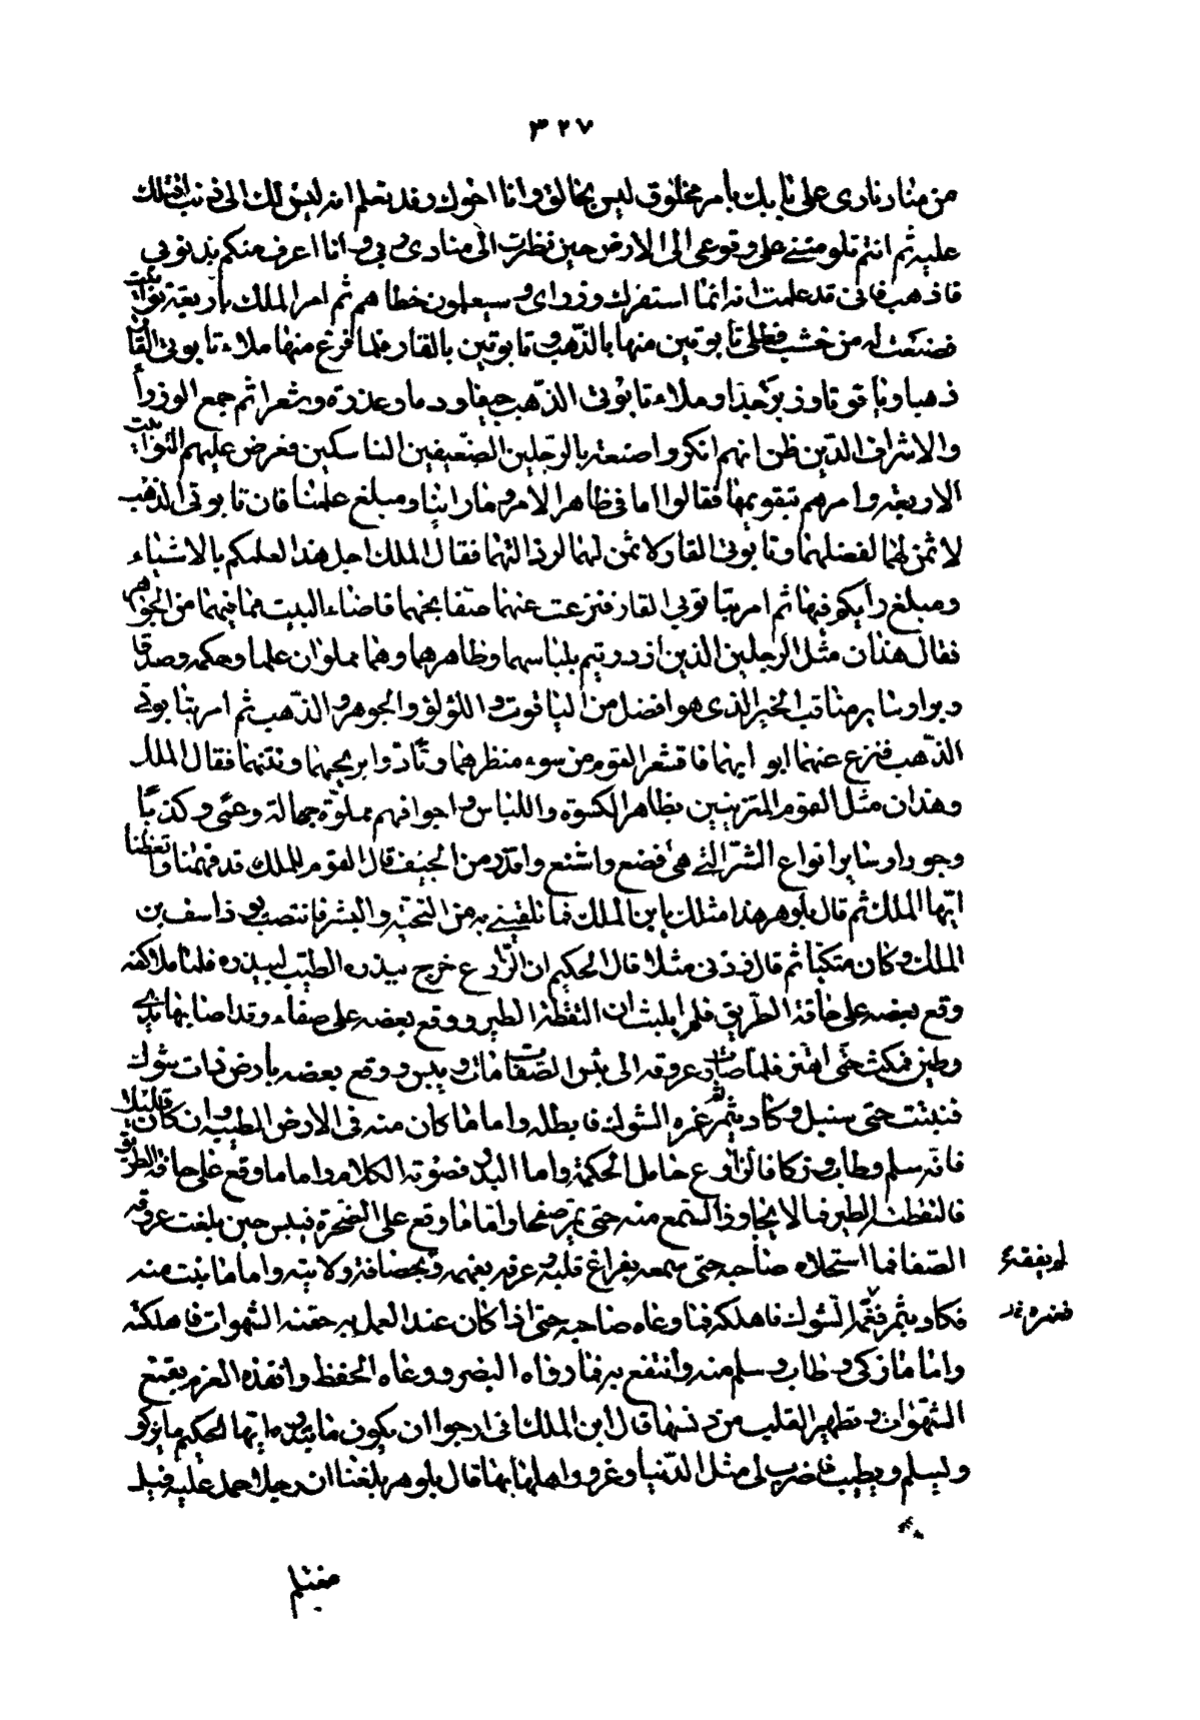 ٣٢٧
من مناد نادى على بابك بامر مخلوق ليس بخالق وانا اخوك وقد تعلم انه ليس لك الى ذنب اقتلك
عليه ثم انتم تلومننى على وقوعى الى الارض حين نظرت الى منادى ربى وانا اعرف منكم بذنوبى
فاذهب فانى قد علمت انه انما استفزك وزراى وسيعلمون خطاهم ثم امر الملك باربعة توابيت
فصنعت له من خشب فطلى تابوتين منها بالذهب وتابوتين بالقار فلما فرغ منها ملاء تابوتى القار
ذهبا وياقوتا وزبرجدا وملاء تابوتى الذهب جيفا ودما وعذرة وشعرا ثم جمع الوزراء
والاشراف الذين ظن انهم انكروا صنعته بالرجلين الضعيفين الناسكين فعرض عليهم التوابيت
الاربعة وامرهم بتقويمها فقالوا اما فى ظاهر الامر وما راينا ومبلغ علمنا فان تابوتى الذهب
لا ثمن لهما لفضلهما وتابوتى القار ولا ثمن لهما لرذالتهما فقال الملك اجل هذا لعلمكم بالاشياء
ومبلغ رايكم فيها ثم امر بتابوتى القار فنزعت عنهما صفايحهما فاضاء البيت مما فيهما من الجواهر
فقال هذان مثل الرجلين الذين ازدريتم بلباسهما وظاهرهما وهما مملوان علما وحكمة وصدقا
وبرا وساير مناقب الخير الذى هو افضل من الياقوت واللؤلؤ والجوهر والذهب ثم امر بتابوتى
الذهب فنزع عنهما ابوابهما فاقشعر القوم من سوء منظرهما وتاذوا بريحهما ونتنهما فقال الملك
وهذان مثل القوم المتزينين بظاهر الكسوة واللباس واجوافهم مملوة جهالة وعمى وكذبا
وجورا وساير انواع الشر التى هى افضع واشنع واقذر من الجيف قال القوم للملك قد فهمنا واتعظنا
ايها الملك ثم قال بلوهر هذا مثلك يا بن الملك فما تلقيتنى به من التحية والبشر فانتصب يوذاسف بن
الملك وكان متكئا ثم قال زدنى مثلا قال الحكيم ان الزارع خرج ببذره الطيب ليبذره فلما ملا كفه
وقع بعضه على حافة الطريق فلم يلبث ان التقطه الطير ووقع بعضه على صفاء وقد اصابها ندى
وطين فمكث حتى اهتز فلما صارت عروقه الى يبس الصفا مات ويبس ووقع بعضه بارض ذات شوك
فنبتت حتى سنبل وكاد يثمر غمره الشوك فابطله واما ما كان منه فى الارض الطيبة وان كان قليلا
فانه سلم وطاب وزكا فالزارع حامل الحكمة واما البذر فصنوف الكلام واما ما وقع على حافة الطريق
فالتقطته الطير فما لا يجاوز السمع منه حتى يمر صفحا واما ما وقع على الصخرة فيبس حين بلغت عروقه
الصفا فما استحلاه صاحبه حتى سمعه بفراغ قلبه وعرفه بفهمه ولا بنية واما ما نبت منه
فكاد يثمر فغمه الشوك فاهلكه فما وعاه صاحبه حتى اذا كان عند العمل به حفته الشهوات فاهلكته
واما ما زكى وطاب وسلم منه وانتفع به فما رواه البصر ووعاه الحفظ وانفذه العزم بقمع
الشهوات وتطهير القلب من دنسها قال ابن الملك انى ارجوا ان يكون ما تبذره ايها الحكيم ما يزكو
ويسلم ويطيب فاضرب لى مثل الدنيا وغرور اهلها بها قال بلوهر بلغنا ان رجلا حمل عليه فيل
مغتلم